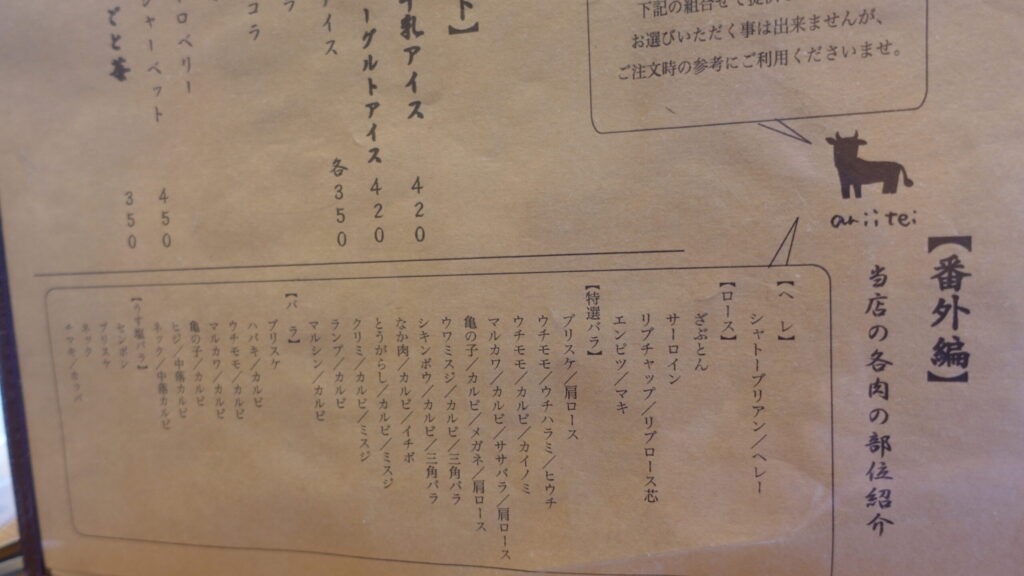 下記の組合せで提供
お選びいただく事は出来ませんが、
ご注文時の参考にご利用くださいませ。
ariitei
【番外編】
当店の各肉の部位紹介
【ヘレ】
シャトーブリアン／ヘレー
【ロース】
ざぶとん
サーロイン
リブチャップ／リブロース芯
エンピツ／マキ
【特選バラ】
ブリスケ／肩ロース
ウチモモ／ウチハラミ／ヒウチ
ウチモモ／カルビ／カイノミ
マルカワ／カルビ／ササバラ／肩ロース
亀の子／カルビ／メガネ／肩ロース
ウワミスジ／カルビ／三角バラ
シキンボウ／カルビ／三角バラ
なか肉／カルビ／イチボ
とうがらし／カルビ／ミスジ
クリミ／カルビ／ミスジ
ランプ／カルビ
マルシン／カルビ
【バラ】
ブリスケ
ハバキ／カルビ
ウチモモ／カルビ
マルカワ／カルビ
亀の子／カルビ
ヒジ／中落カルビ
ネック／中落カルビ
【うす塩バラ】
センボン
ブリスケ
ネック
チマキ／ネッパ
ト】
乳アイス 420
ーグルトアイス 420
アイス 各350
フ
コラ
ロベリー
シャーベット 450
ごと茶 350